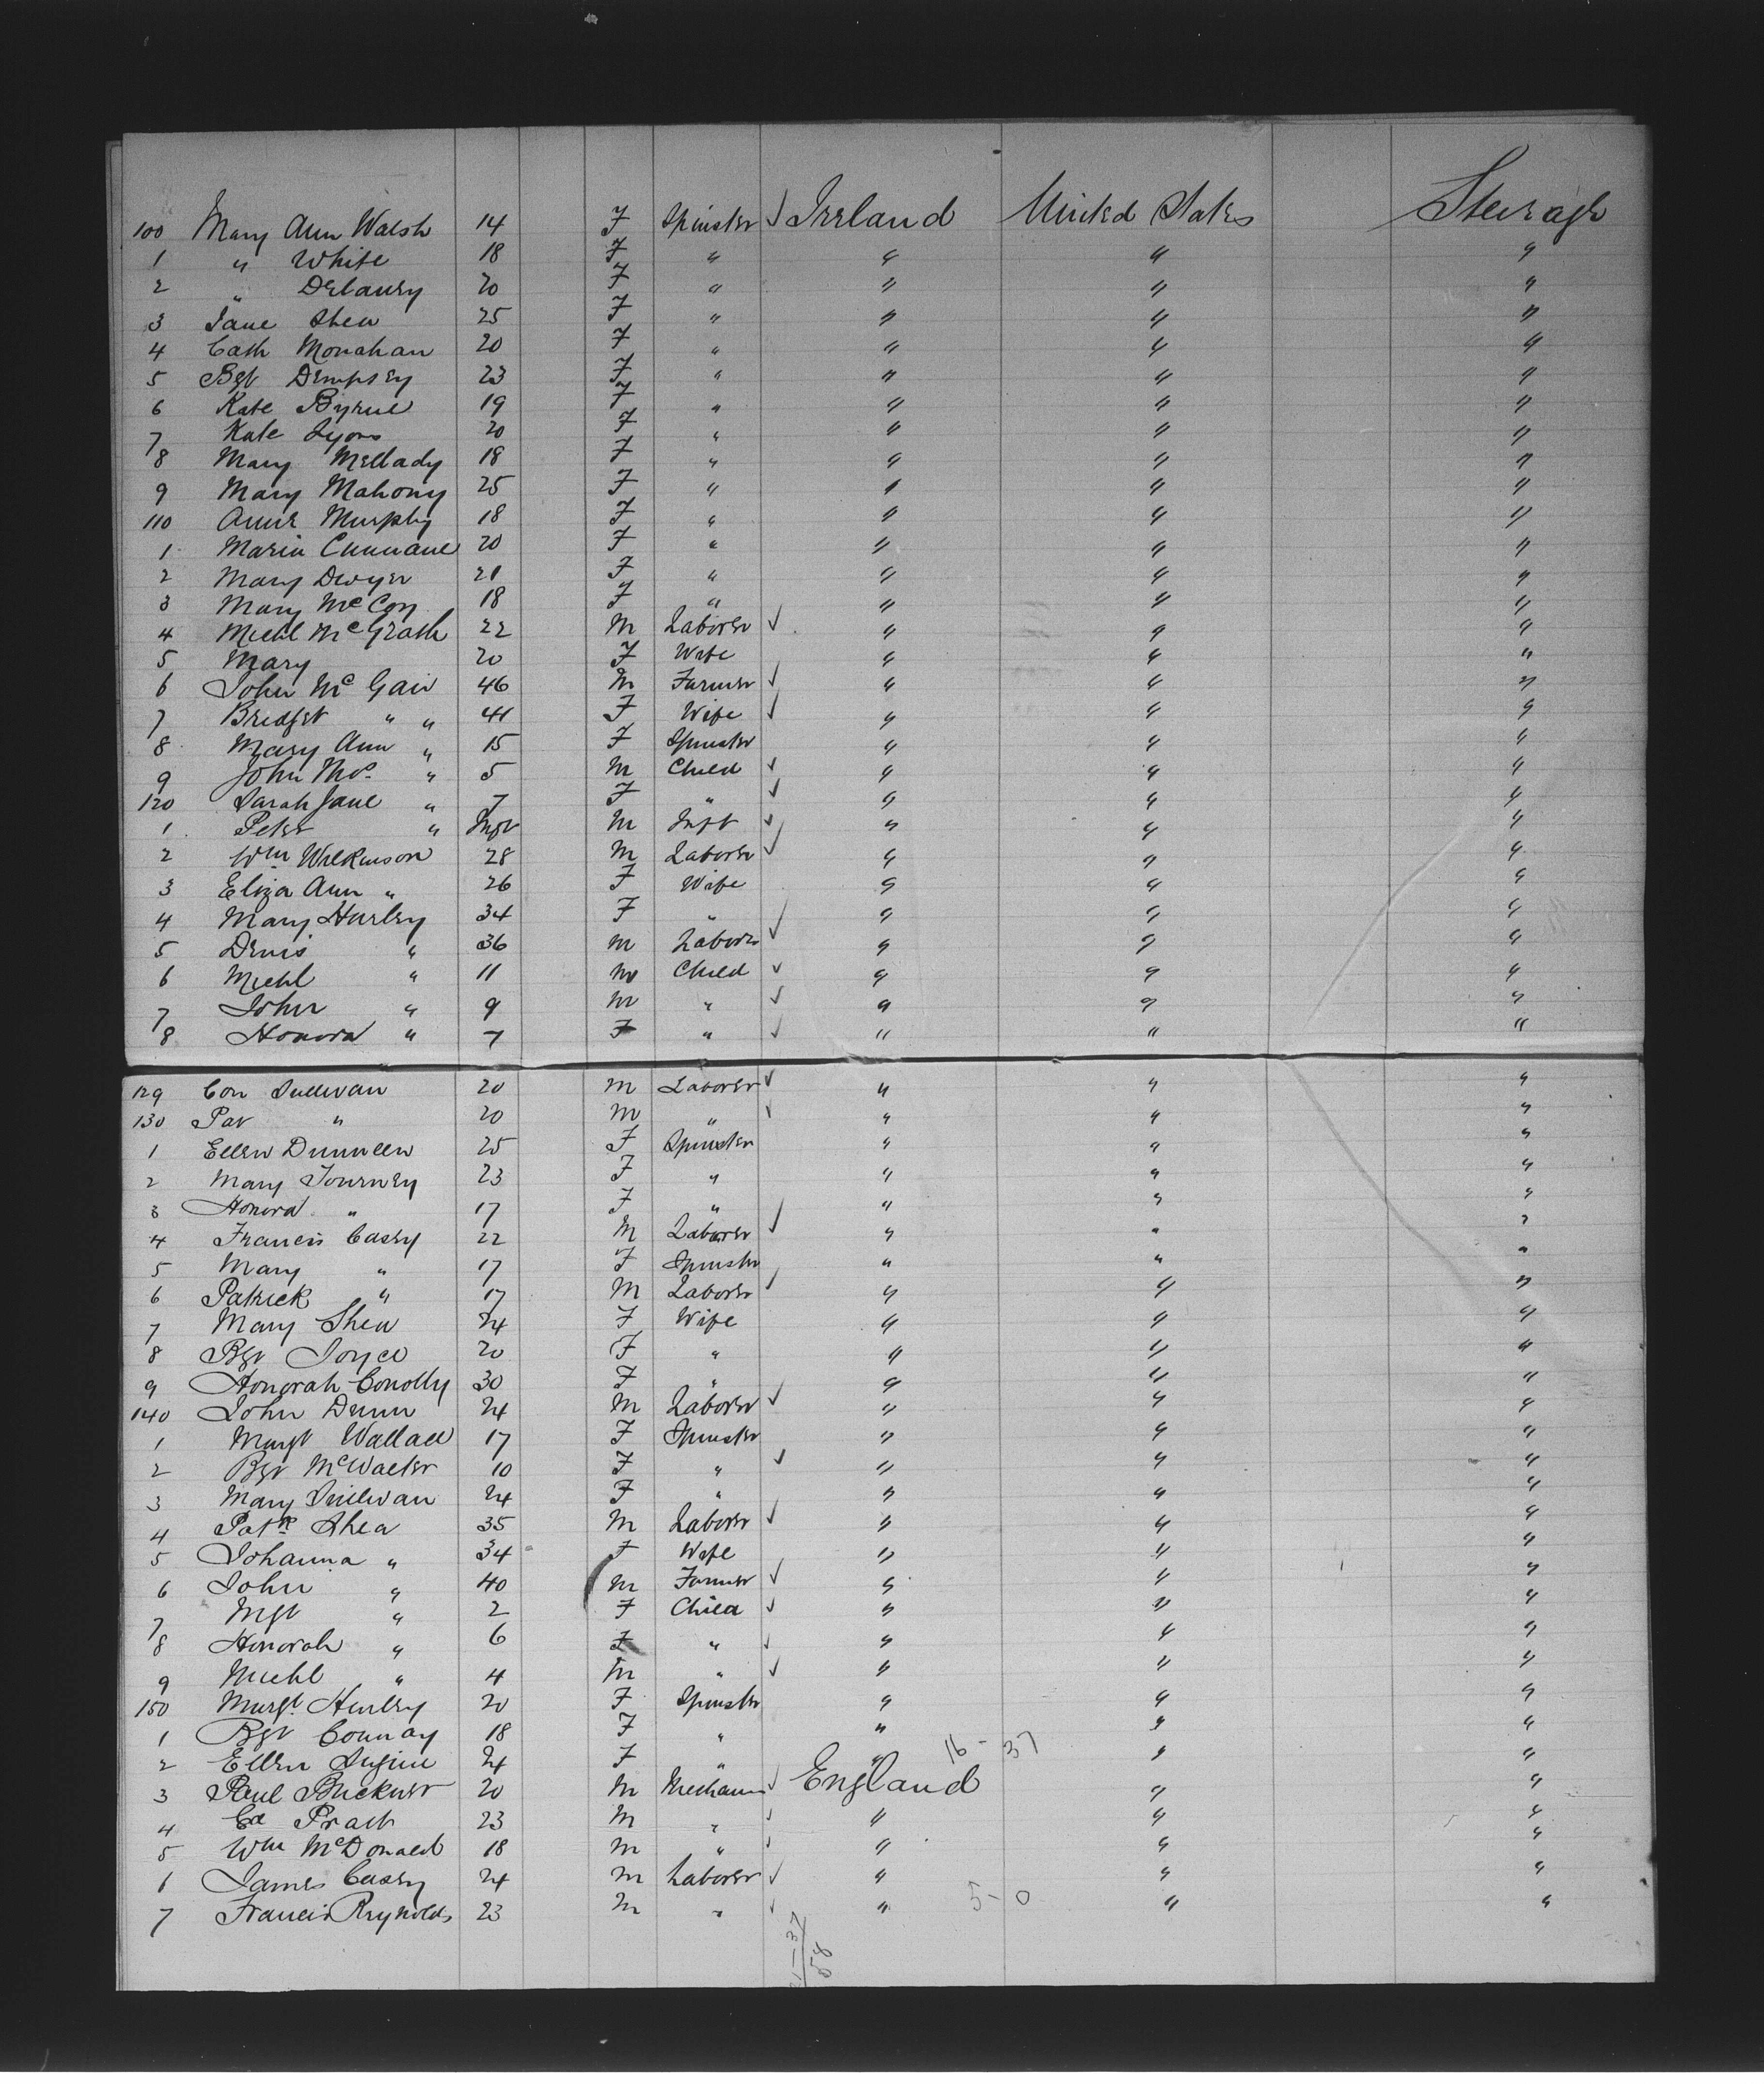 100 Mary Ann Walsh 14 F Spinster ✓ Ireland United States Steerage
1 " White 18 F " " " "
2 " Delaney 20 F " " " "
3 Jane Shea 25 F " " " "
4 Cath Monahan 20 F " " " "
5 Bgt Dempsey 23 F " " " "
6 Kate Byrne 19 F " " " "
7 Kate Lyons 20 F " " " "
8 Mary Mellady 18 F " " " "
9 Mary Mahony 25 F " " " "
110 Annie Murphy 18 F " " " "
1 Maria Cunnane 20 F " " " "
2 Mary Dwyer 21 F " " " "
3 Mary McCoy 18 F " " " "
4 Michl McGrath 22 M Laborer ✓ " " "
5 Mary 20 F Wife " " "
6 John McGair 46 M Farmer ✓ " " "
7 Bridget " " 41 F Wife ✓ " " "
8 Mary Ann " 15 F Spinster " " "
9 John " 5 M Child ✓ " " "
120 Sarah Jane " 7 F " ✓ " " "
1 Peter " Inft M Inft ✓ " " "
2 Wm Wilkinson 28 M Laborer ✓ " " "
3 Eliza Ann " 26 F Wife " " "
4 Mary Hurley 34 F " " " "
5 Denis " 36 M Laborer ✓ " " "
6 Michl " 11 M Child ✓ " " "
7 John " 9 M " ✓ " " "
8 Honora " 7 F " ✓ " " "
129 Con Sullivan 20 M Laborer ✓ " " "
130 Pat " 20 M " ✓ " " "
1 Ellen Dunneen 25 F Spinster " " "
2 Mary Tourney 23 F " " " "
3 Honora " 17 F " " " "
4 Francis Casey 22 M Laborer ✓ " " "
5 Mary " 17 F Spinster " " "
6 Patrick " 17 M Laborer ✓ " " "
7 Mary Shea 24 F Wife " " "
8 Bgt Joyce 20 F " " " "
9 Honorah Conolly 30 F " " " "
140 John Dunn 24 M Laborer ✓ " " "
1 Margt Wallace 17 F Spinster " " "
2 Bgt McWalter 10 F " ✓ " " "
3 Mary Sullivan 24 F " " " "
4 Patk Shea 35 M Laborer ✓ " " "
5 Johanna " 34 F Wife " " "
6 John " 40 M Farmer ✓ " " "
7 Mgt " 2 F Child ✓ " " "
8 Honorah " 6 F " ✓ " " "
9 Michl " 4 M " ✓ " " "
150 Margt Hurley 20 F Spinster " " "
1 Bgt Conway 18 F " " " "
2 Ellen 24 F " " 16 - 37 " "
3 Paul 20 M Mechanic ✓ England " "
4 Ed Pratt 23 M " ✓ " " "
5 Wm McDonald 18 M " ✓ " " "
6 James Casey 24 M Laborer ✓ " " "
7 Francis Reynolds 23 M " ✓ " 5 - 0 " "
21-37
58